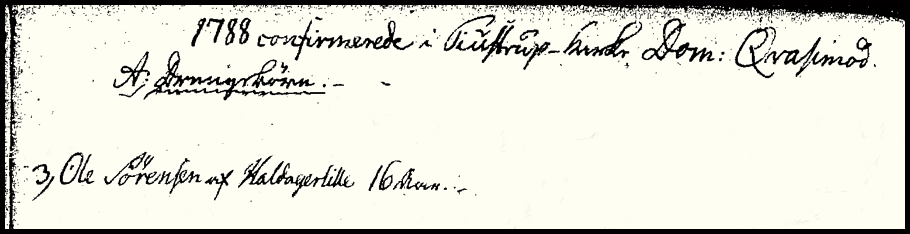 1788 confirmerede i Fuistrup-Kirke, Dom: Qvasimod.
A; Drengebörn.
3, Ole Sörensen af Haldagerlille 16 Aar.